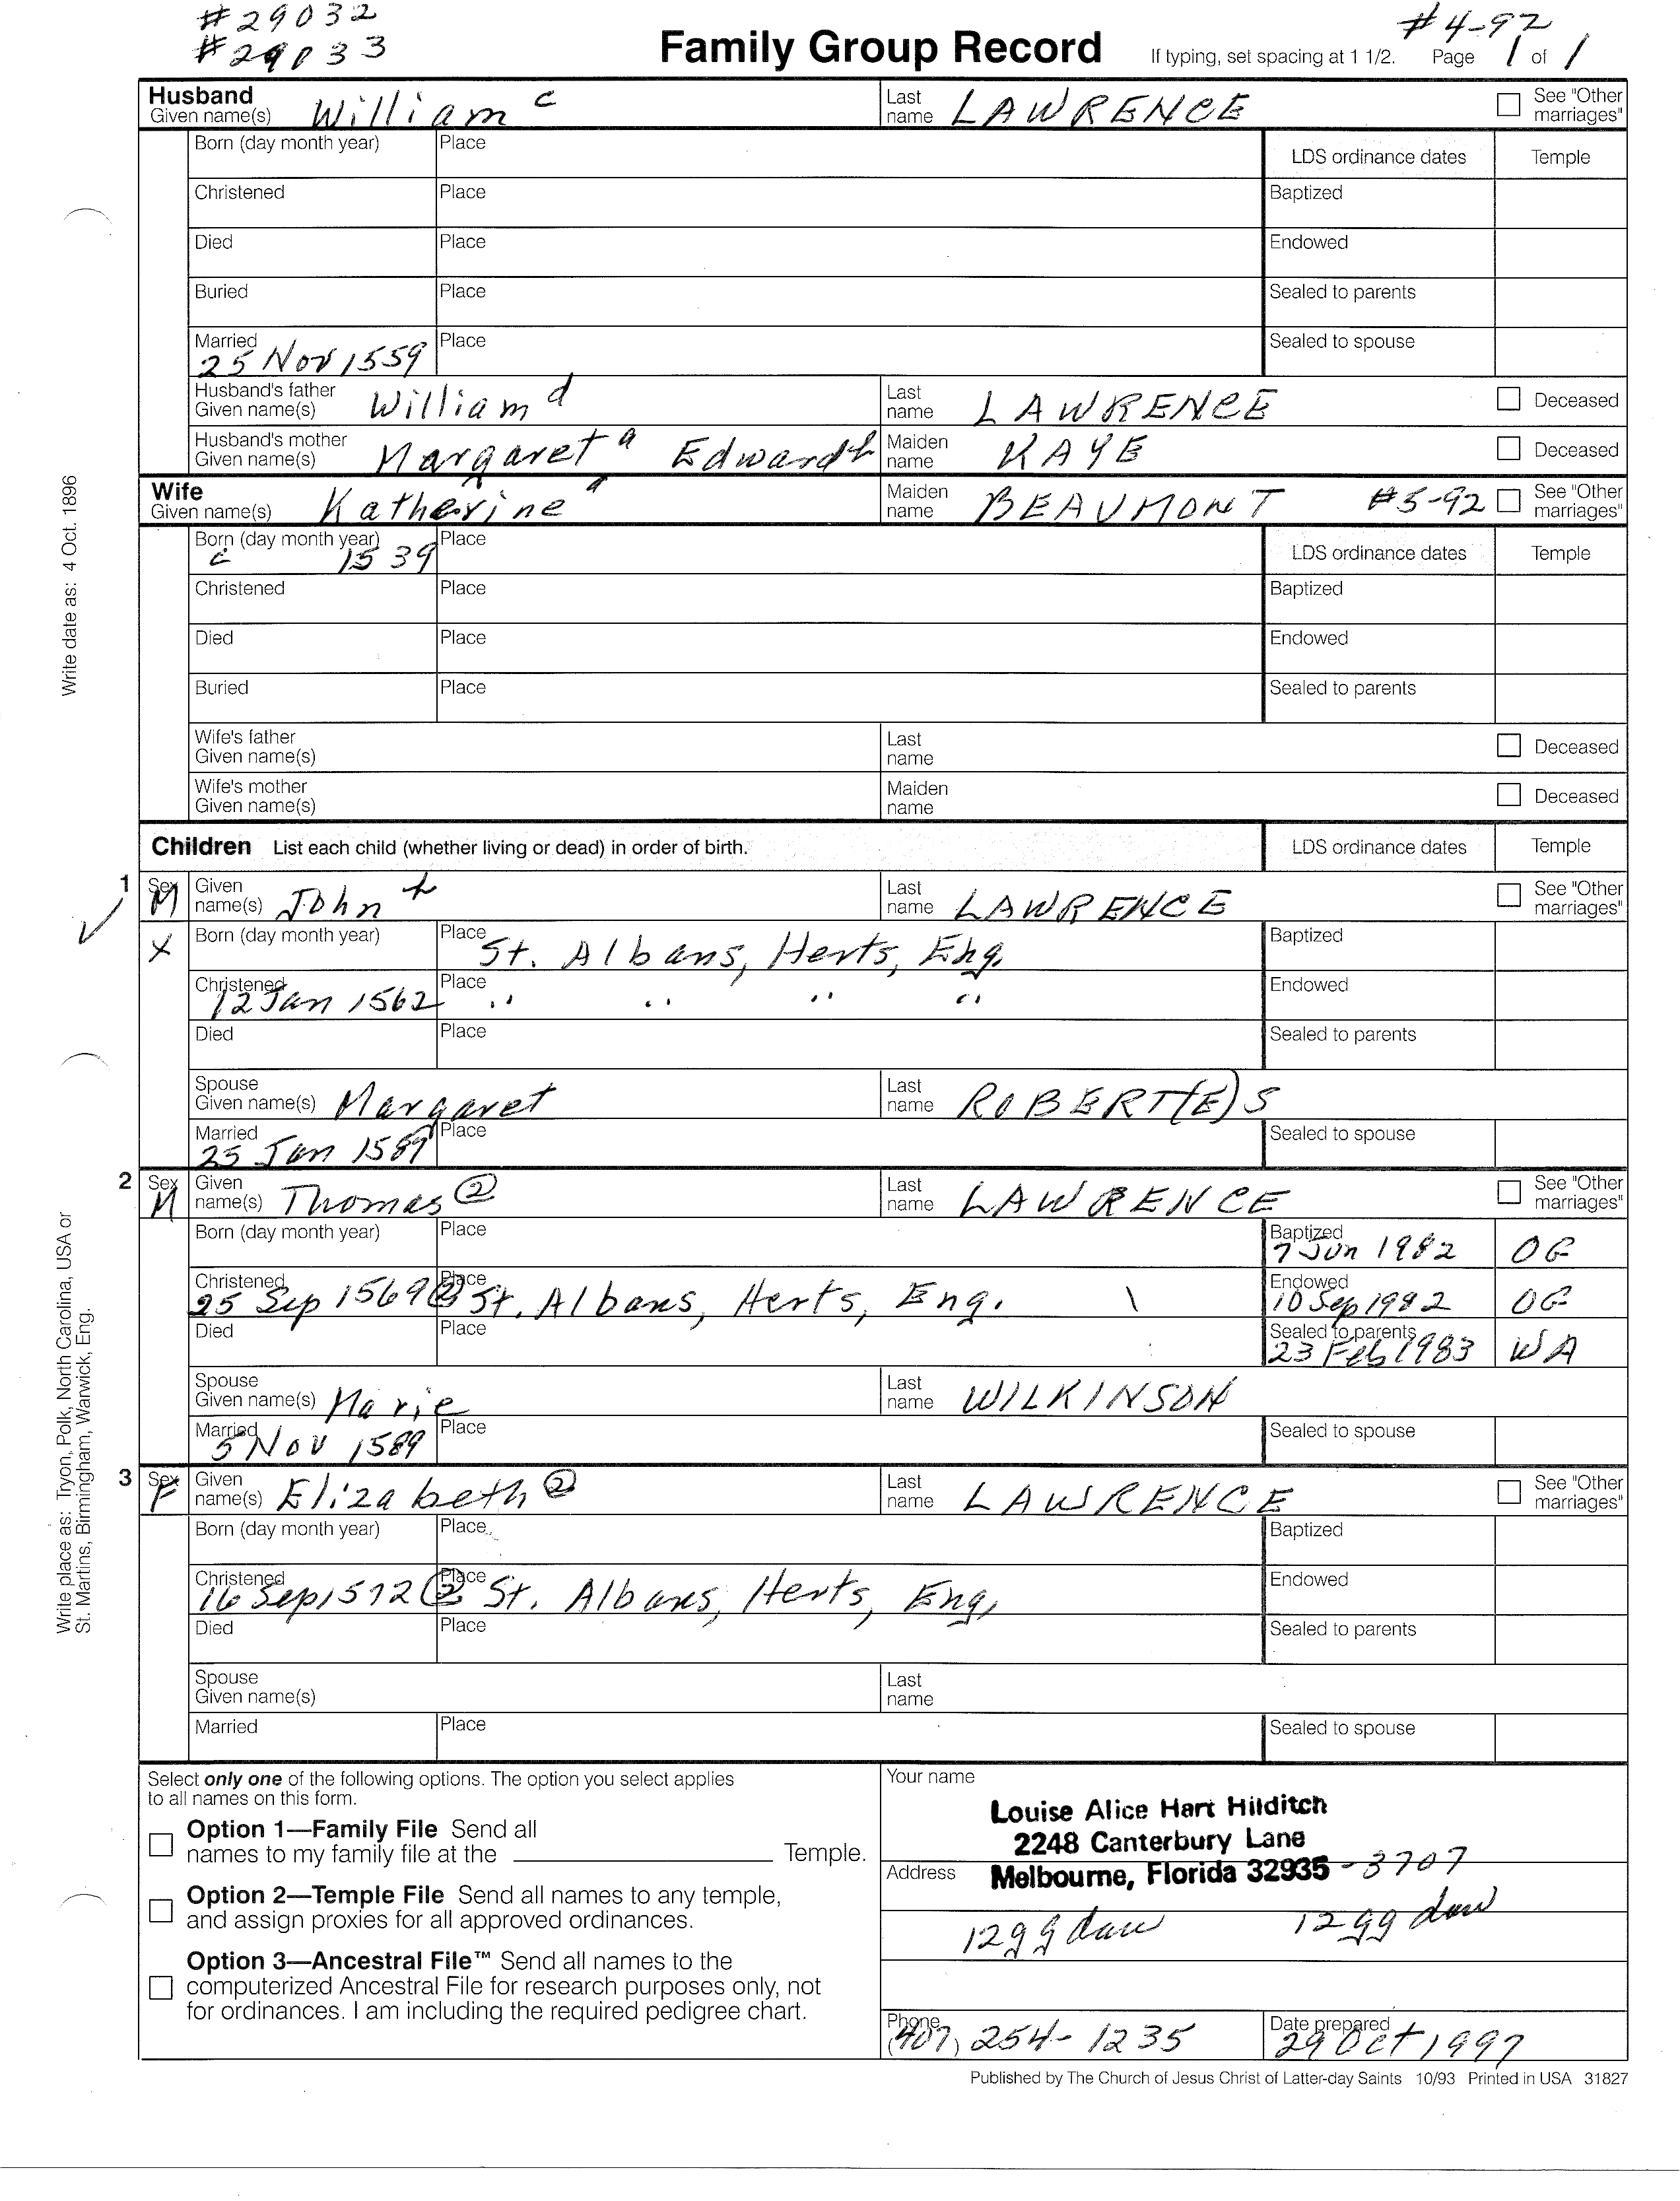 #29032
#29033
#4-92
Family Group Record If typing, set spacing at 1 1/2. Page 1 of 1
Husband
Given name(s) William c Last name LAWRENCE See "Other marriages"
Born (day month year) Place LDS ordinance dates Temple
Christened Place Baptized
Died Place Endowed
Buried Place Sealed to parents
Married 25 Nov 1559 Place Sealed to spouse
Husband's father Given name(s) William d Last name LAWRENCE Deceased
Husband's mother Given name(s) Margaret a Maiden name KAYE Deceased
Wife
Given name(s) Katherine a Maiden name BEAUMONT #5-92 See "Other marriages"
Born (day month year) c 1539 Place LDS ordinance dates Temple
Christened Place Baptized
Died Place Endowed
Buried Place Sealed to parents
Wife's father Given name(s) Last name Deceased
Wife's mother Given name(s) Maiden name Deceased
Children List each child (whether living or dead) in order of birth. LDS ordinance dates Temple
1 Sex M Given name(s) John Last name LAWRENCE See "Other marriages"
X Born (day month year) Place St. Albans, Herts, Eng. Baptized
Christened 12 Jan 1562 Place " " " " Endowed
Died Place Sealed to parents
Spouse Given name(s) Margaret Last name ROBERT(E)S
Married 25 Jan Place Sealed to spouse
2 Sex M Given name(s) Thomas ② Last name LAWRENCE See "Other marriages"
Born (day month year) Place Baptized 7 Jun 1982 OG
Christened 25 Sep 1569 ② Place St. Albans, Herts, Eng. Endowed 10 Sep 1982 OG
Died Place Sealed to parents 23 Feb 1983 WA
Spouse Given name(s) Marie Last name WILKINSON
Married 5 Nov 1589 Place Sealed to spouse
3 Sex F Given name(s) Elizabeth ② Last name LAWRENCE See "Other marriages"
Born (day month year) Place Baptized
Christened 16 Sep 1572 ② Place St. Albans, Herts, Eng. Endowed
Died Place Sealed to parents
Spouse Given name(s) Last name
Married Place Sealed to spouse
Select only one of the following options. The option you select applies
to all names on this form.
Option 1—Family File Send all
names to my family file at the Temple.
Option 2—Temple File Send all names to any temple,
and assign proxies for all approved ordinances.
Option 3—Ancestral File™ Send all names to the
computerized Ancestral File for research purposes only, not
for ordinances. I am including the required pedigree chart.
Your name
Louise Alice Hart Hilditch
2248 Canterbury Lane
Address Melbourne, Florida 32935-3707
12gg dau 12gg dau
Phone (407) 254-1235 Date prepared 29 Oct 1997
Published by The Church of Jesus Christ of Latter-day Saints 10/93 Printed in USA 31827
Write date as: 4 Oct. 1896
Write place as: Tryon, Polk, North Carolina, USA or
St. Martins, Birmingham, Warwick, Eng.